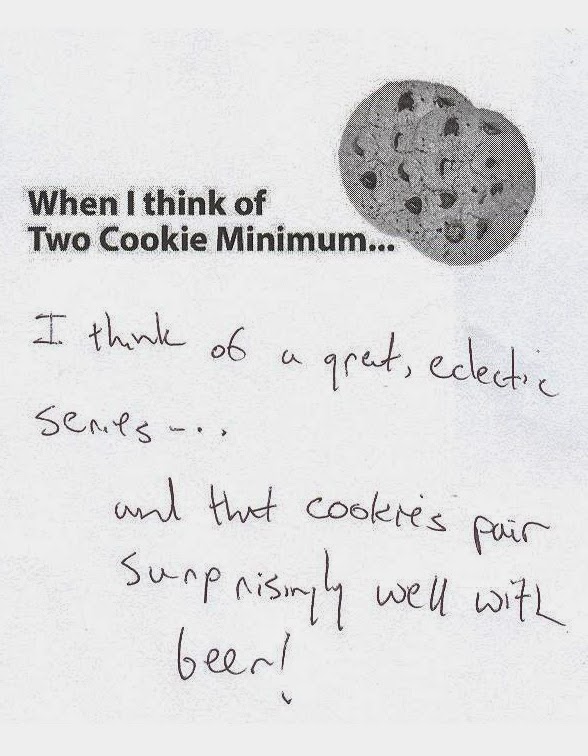 When I think of
Two Cookie Minimum...
I think of a great, eclectic
series -...
and that cookies pair
surprisingly well with
beer!